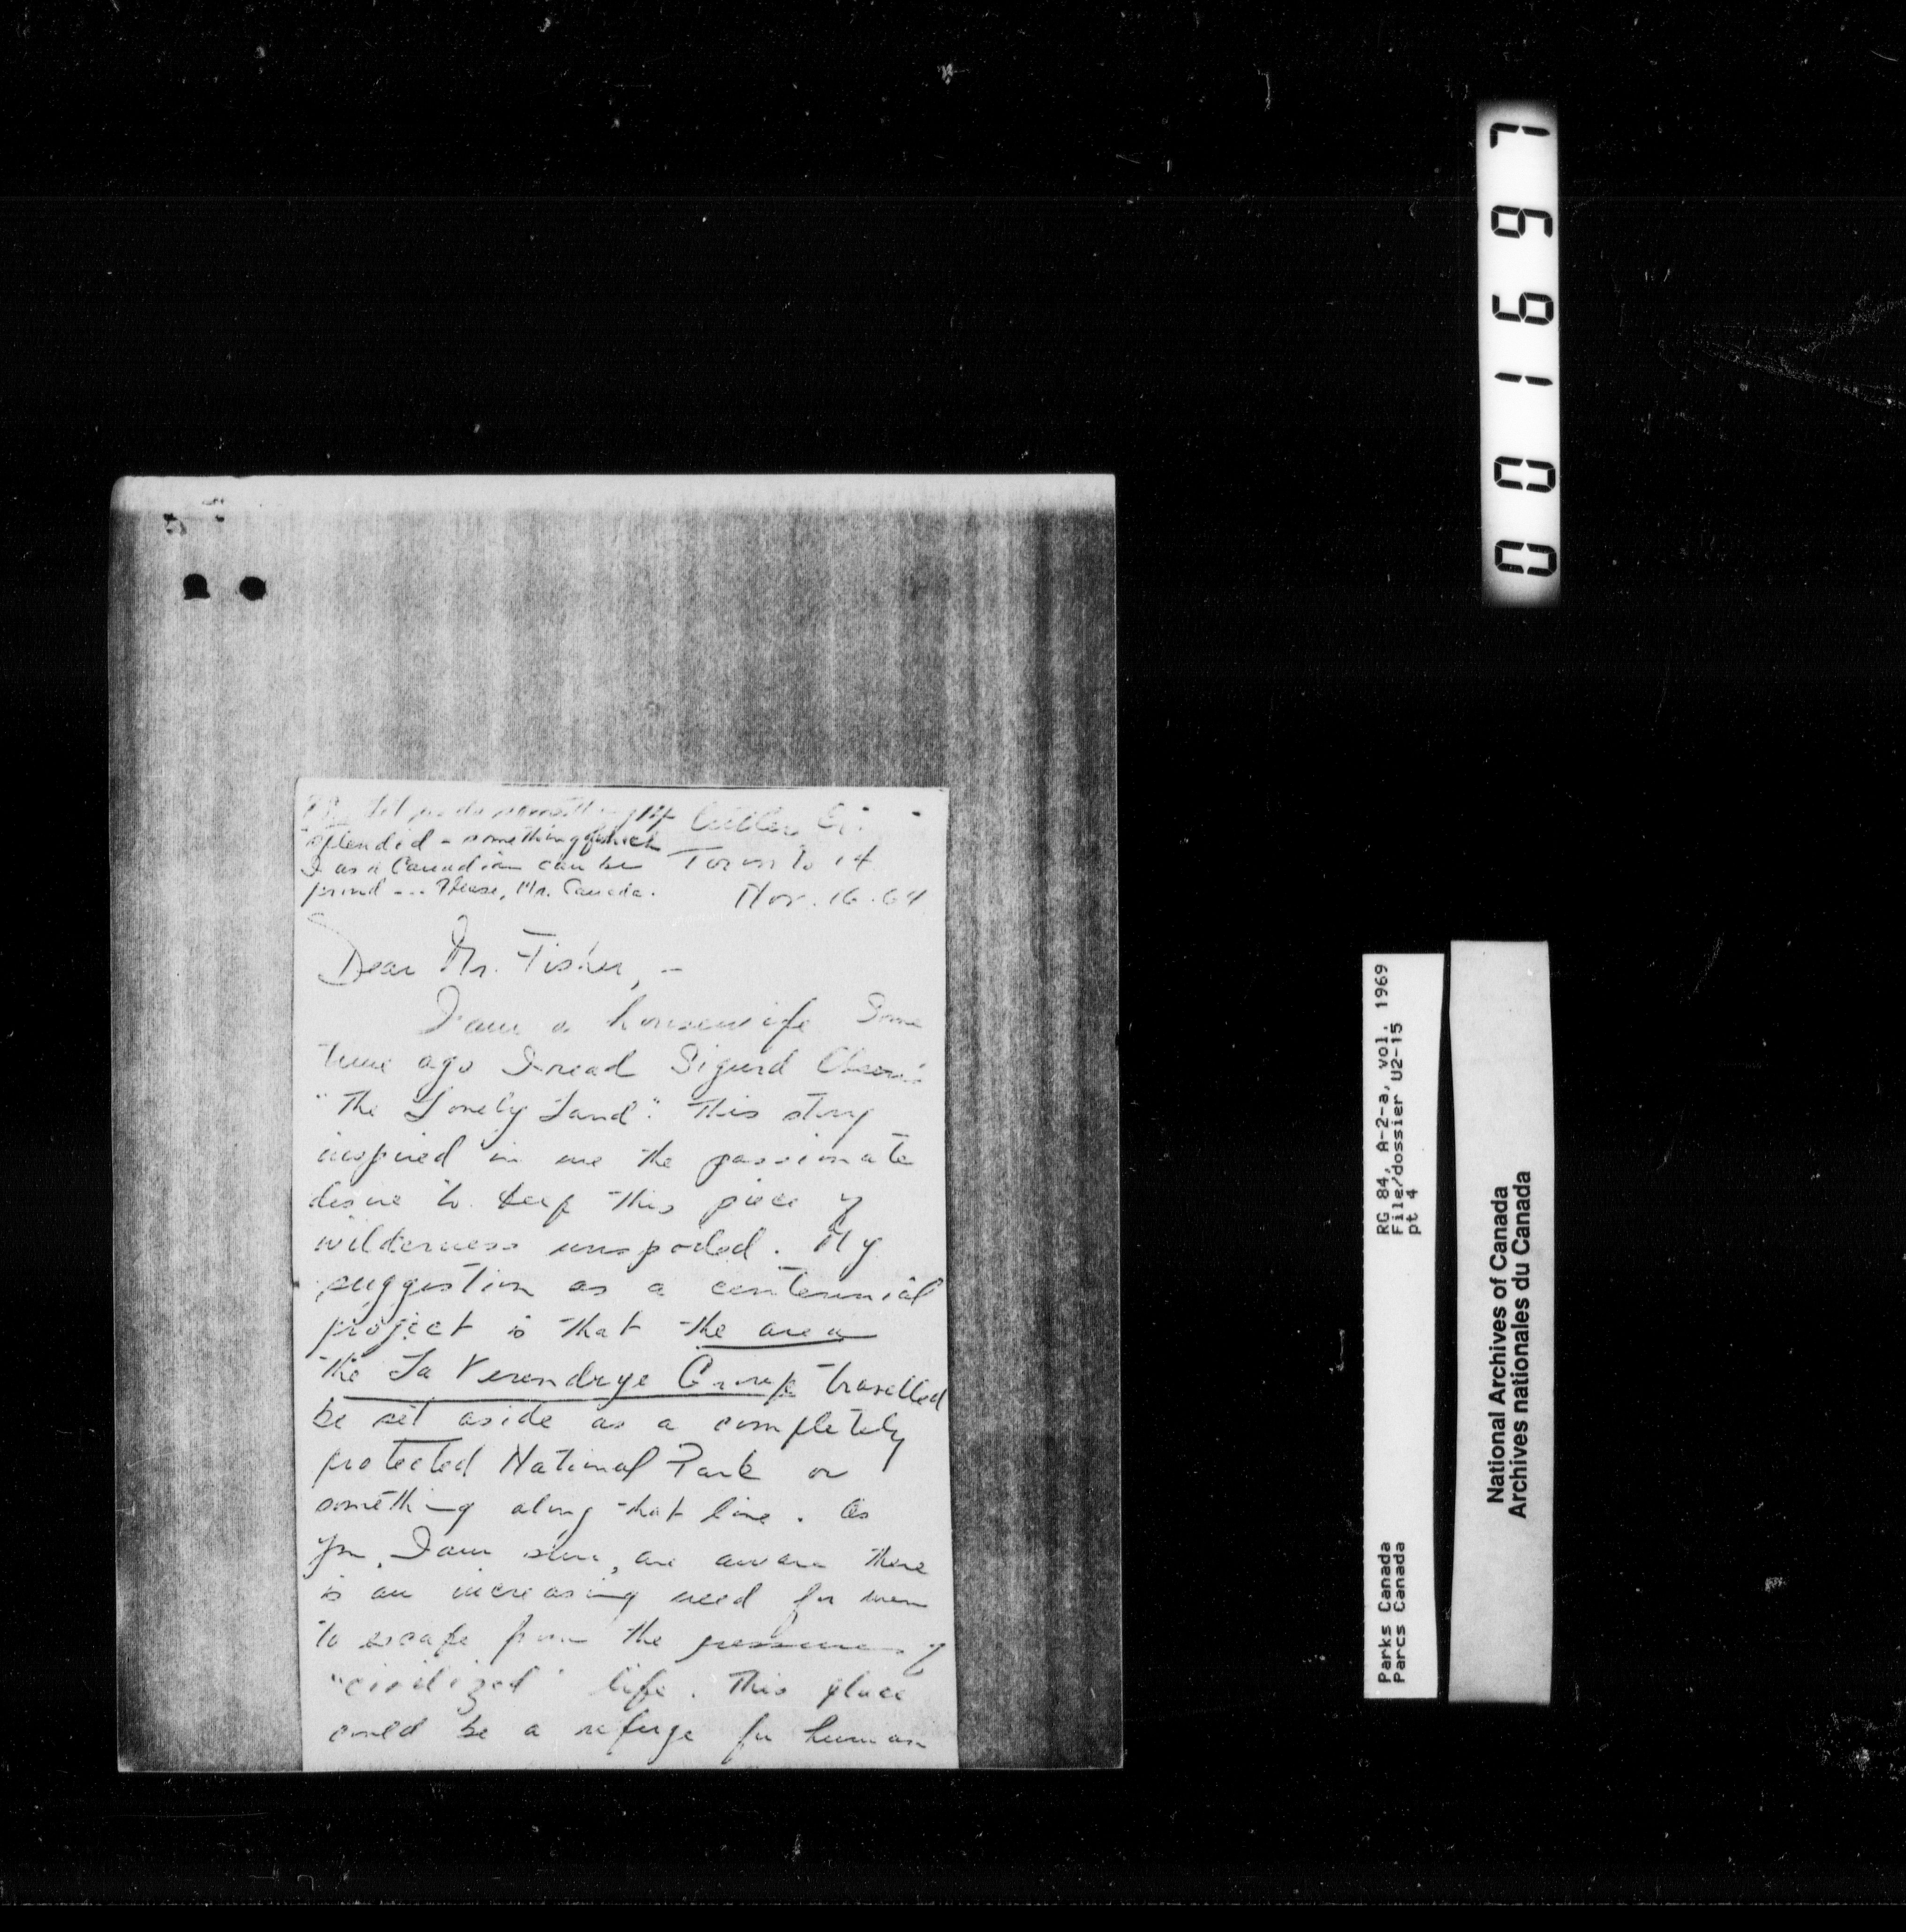 P.S. Let us do something
splendid - something of which
I as a Canadian can be
proud --- Please, Mr. Canada.
Toronto 14
Nov. 16. 64
Dear Mr. Fisher, -
I am a housewife Some
time ago I read Sigurd Olson's
"The Lonely Land". This story
inspired in me the passionate
desire to keep this piece of
wilderness unspoiled. My
suggestion as a centennial
project is that the area
the La Verendrye Group travelled
be set aside as a completely
protected National Park or
something along that line. As
you, I am sure, are aware there
is an increasing need for men
to escape from the pressures of
"civilized" life. This place
could be a refuge for human
0001697
RG 84, A-2-a, vol. 1969
File/dossier U2-15
pt 4
Parks Canada
Parcs Canada
National Archives of Canada
Archives nationales du Canada